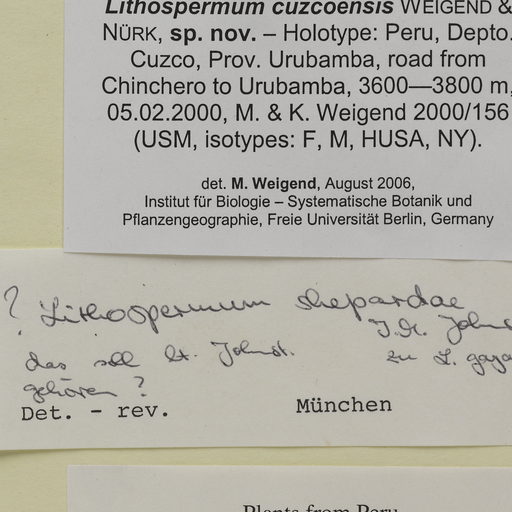 Lithospermum cuzcoensis WEIGEND &
NÜRK, sp. nov. – Holotype: Peru, Depto.
Cuzco, Prov. Urubamba, road from
Chinchero to Urubamba, 3600—3800 m,
05.02.2000, M. & K. Weigend 2000/156
(USM, isotypes: F, M, HUSA, NY).
det. M. Weigend, August 2006,
Institut für Biologie – Systematische Botanik und
Pflanzengeographie, Freie Universität Berlin, Germany
? Lithospermum shepardae
I.M. Johns
das soll lt. Johnst. zu L. gaya
gehören ?
Det. - rev. München
Plants from Peru